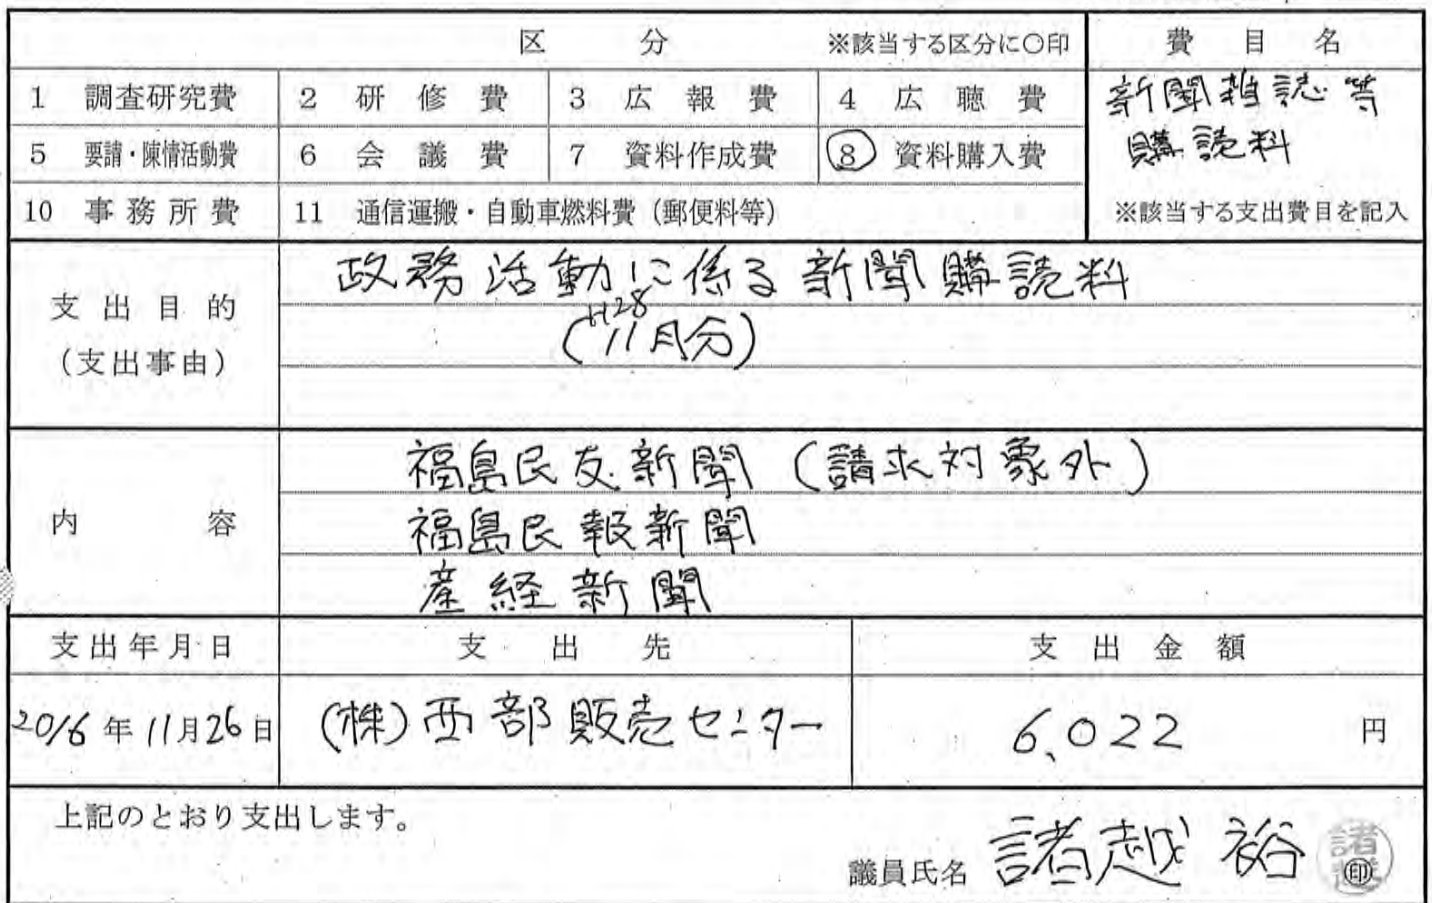 区 分 ※該当する区分に○印
費 目 名
1 調査研究費 2 研修費 3 広報費 4 広聴費
新聞雑誌等
5 要請・陳情活動費 6 会議費 7 資料作成費 8 資料購入費
購読料
10 事務所費 11 通信運搬・自動車燃料費（郵便料等）
※該当する支出費目を記入
支出目的
（支出事由）
政務活動に係る新聞購読料
H28
（11月分）
内 容
福島民友新聞（請求対象外）
福島民報新聞
産経新聞
支出年月日 支出先 支出金額
2016年11月26日 （株）西部販売センター 6,022 円
上記のとおり支出します。
議員氏名 諸越 裕 印